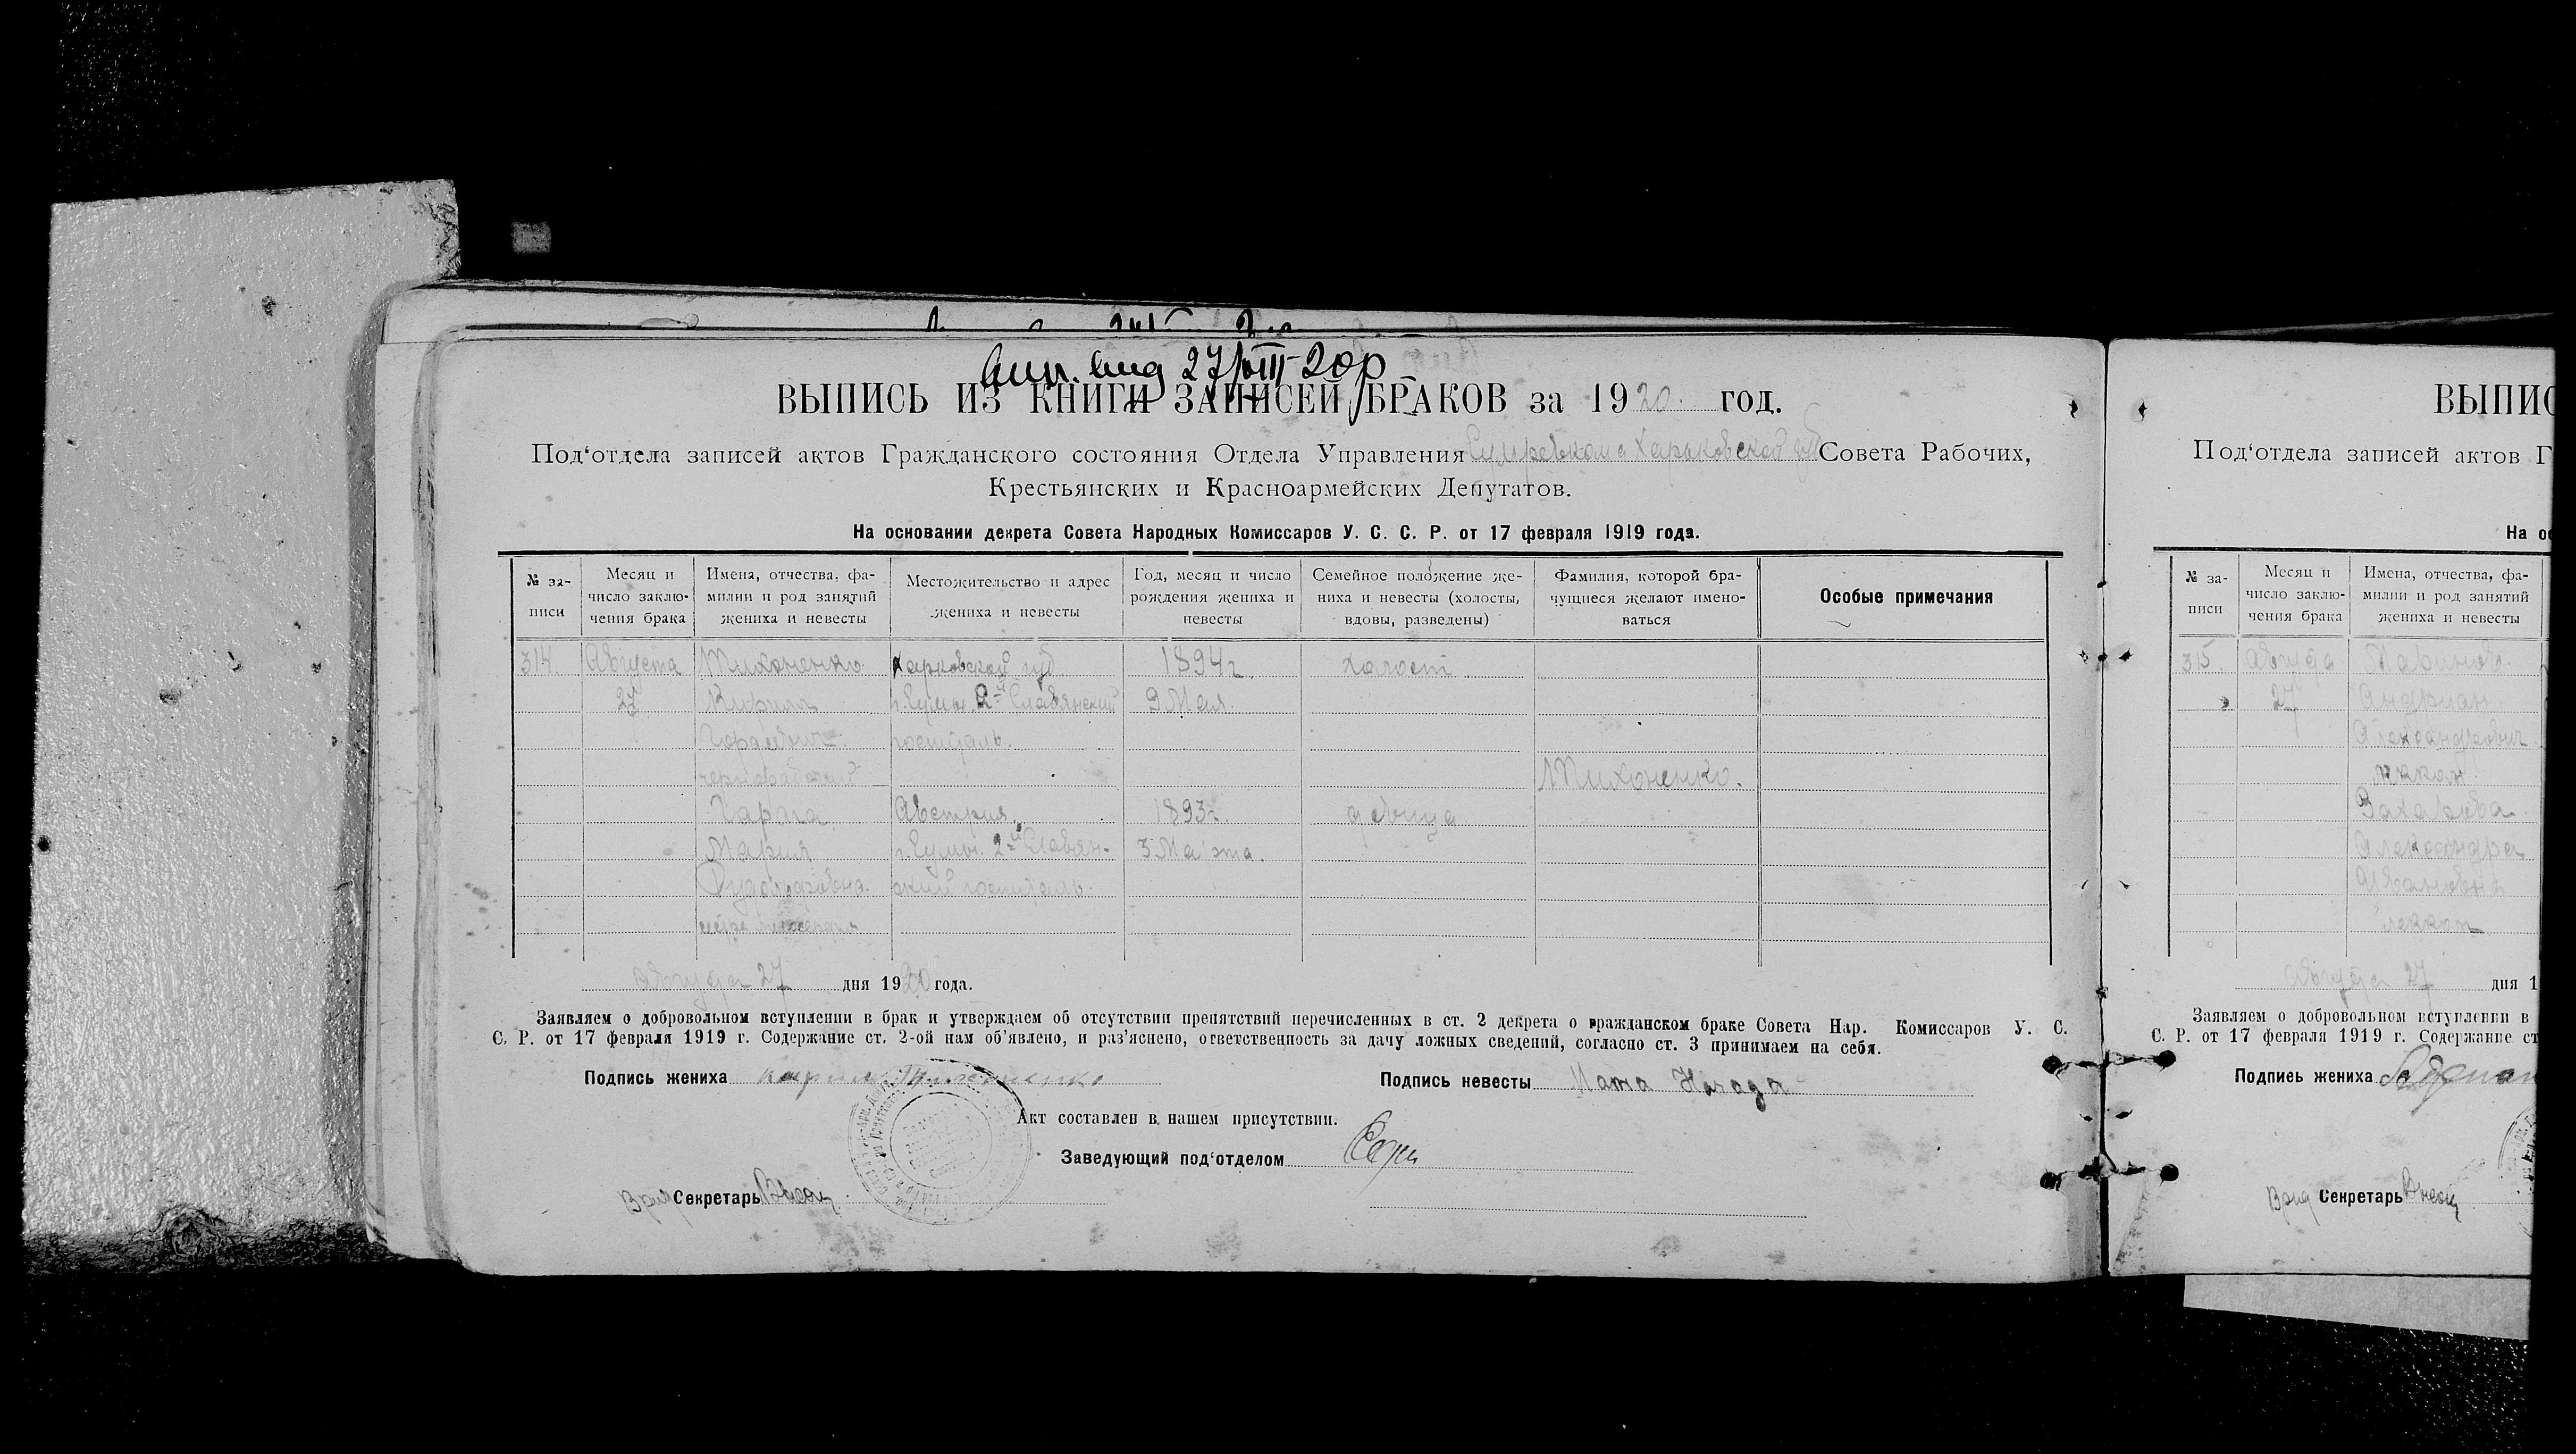 27/VIII-20р
ВЫПИСЬ ИЗ КНИГИ ЗАПИСЕЙ БРАКОВ за 1920 год.
Под‘отдела записей актов Гражданского состояния Отдела Управления Харьковской губ Совета Рабочих,
Крестьянских и Красноармейских Депутатов.
На основании декрета Совета Народных Комиссаров У. С. С. Р. от 17 февраля 1919 года.
№ за-
писи
Месяц и
число заклю-
чения брака
Имена, отчества, фа-
милии и род занятий
жениха и невесты
Местожительство и адрес
жениха и невесты
Год, месяц и число
рождения жениха и
невесты
Семейное положение же-
ниха и невесты (холосты,
вдовы, разведены)
Фамилия, которой бра-
чущиеся желают имено-
ваться
Особые примечания
314. Августа Тихоненко Харковской губ 1894г. холост
27 Кирилл г. Сумы 2-й Славянский 9 Мая
госпиталь.
чернорабочий Тихоненко.
Австрия 1893г. девица
Мария г. Сумы. 2-й Славян- 3 Марта.
Рудольфовна ский госпиталь.
Августа 27 дня 1920 года.
Заявляем о добровольном вступлении в брак и утверждаем об отсутствии препятствий перечисленных в ст. 2 декрета о гражданском браке Совета Нар. Комиссаров У. С.
С. Р. от 17 февраля 1919 г. Содержание ст. 2-ой нам об’явлено, и раз’яснено, ответственность за дачу ложных сведений, согласно ст. 3 принимаем на себя.
Подпись жениха Кирилл Тихоненко Подпись невесты
Акт составлен в нашем присутствии.
Заведующий под‘отделом
Врид Секретарь
ВЫПИС
Под‘отдела записей актов Г
На ос
№ за-
писи
Месяц и
число заклю-
чения брака
Имена, отчества, фа-
милии и род занятий
жениха и невесты
315. Августа
27 Андриан
Александрович
лекком
Захарова
Александра
Ивановна
лекком
Августа 27 дня 1
Заявляем о добровольном вступлении в
С. Р. от 17 февраля 1919 г. Содержание ст
Подпись жениха
Врид Секретарь